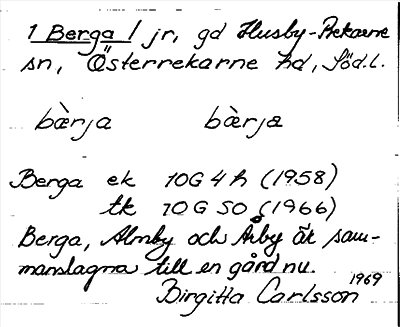 1 Berga / jr, gd Husby-Rekarne
sn, Österrekarne hd, Söd.l.
bærja bærja
Berga ek 10G 4h (1958)
tk 10G SO (1966)
Berga, Almby och Åby är sam-
manslagna till en gård nu.
Birgitta Carlsson 1969